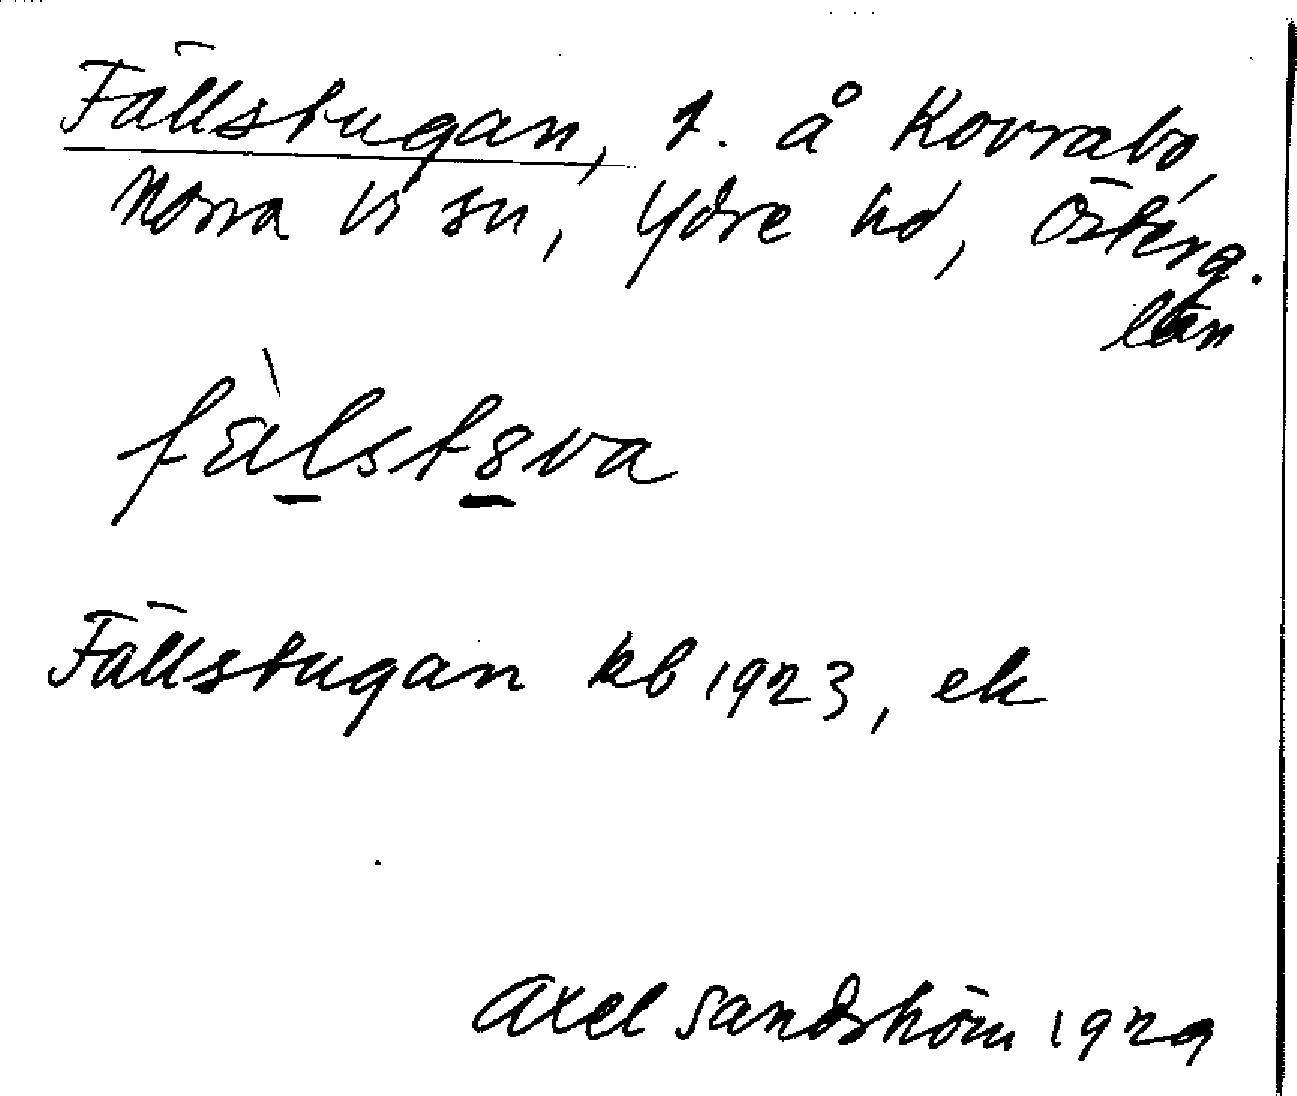 Fällstugan, t. å Kovrabo,
Norra Vi sn, Ydre hd, Österg.
län
fälstọva
Fällstugan kb 1923, ek
Axel Sandström 1929